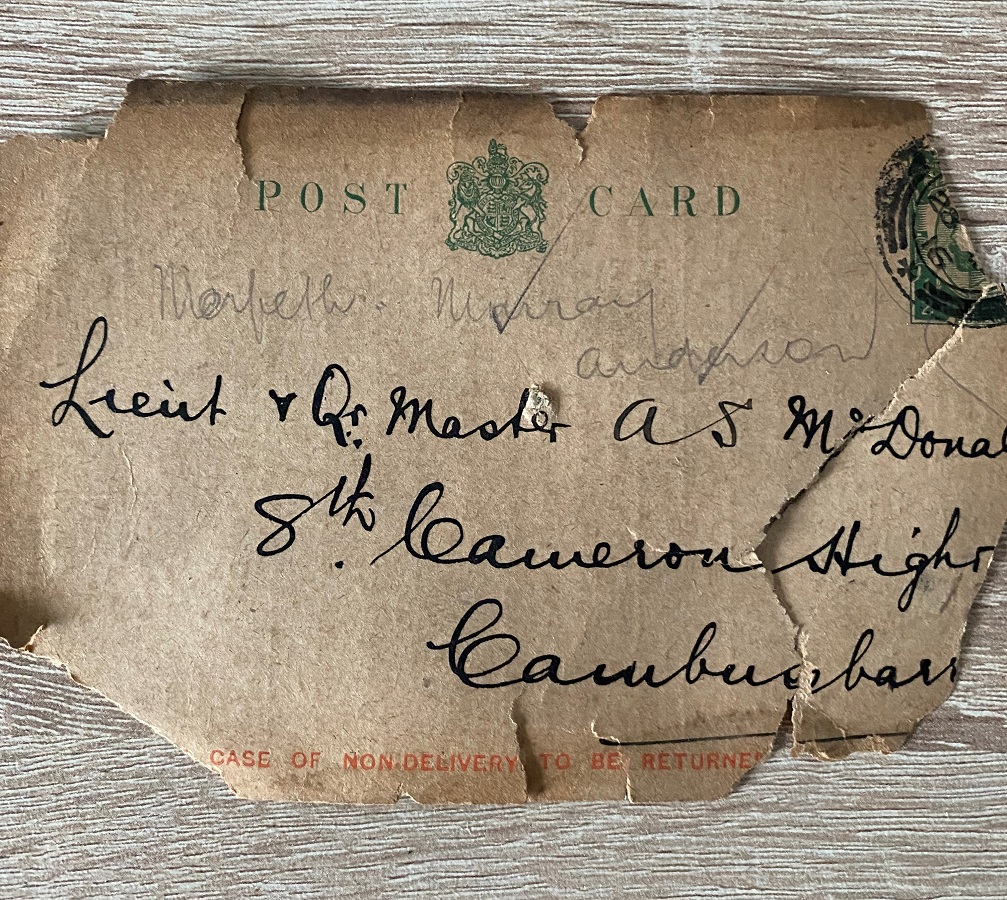 POST CARD
28
16
Morpeth. Murray
anderson
Lieut & Qr. Master A S McDonal
8th. Cameron Highr
Cambusbarr
CASE OF NON-DELIVERY TO BE RETURNE